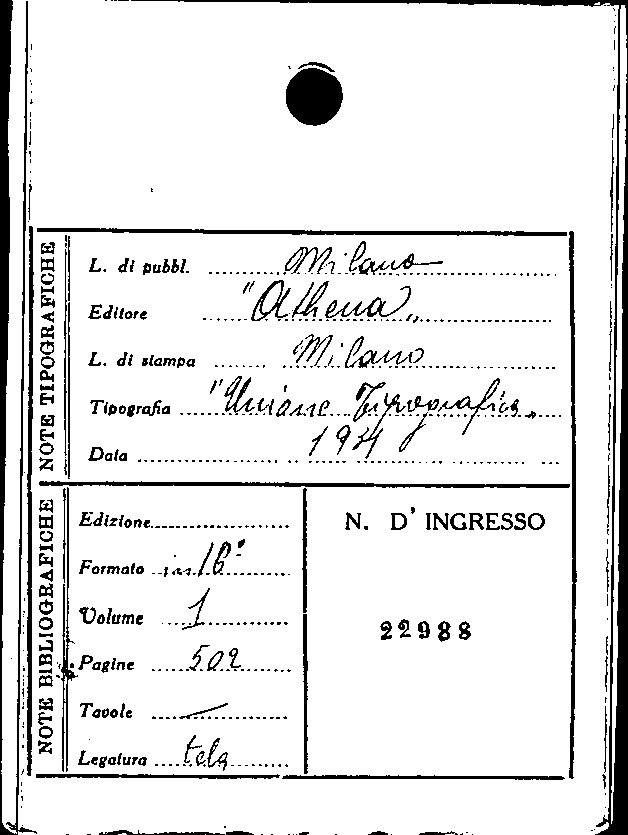 NOTE TIPOGRAFICHE
L. di pubbl. Milano
Editore "Athena"
L. di stampa Milano
Tipografia "Unione Tipografica"
Data
NOTE BIBLIOGRAFICHE
Edizione
Formato in 16°
Volume 1
Pagine 502
Tavole —
Legatura tela
N. D'INGRESSO
22988